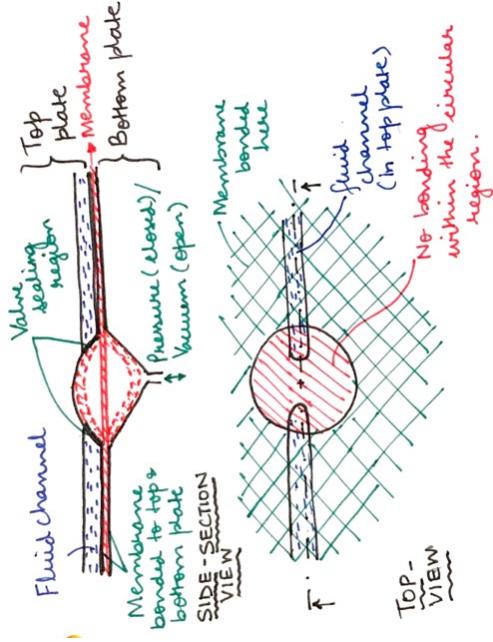 Fluid channel
Valve
sealing
region
Top
plate
Membrane
Bottom plate
Pressure (closed)/
Vacuum (open)
Membrane
bonded to top &
bottom plate
SIDE-SECTION
VIEW
Membrane
bonded
here
fluid
channel
(in top plate)
No bonding
within the circular
region.
TOP-
VIEW